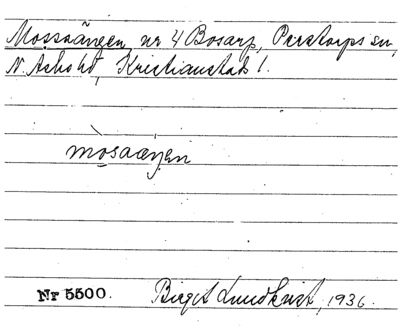 Mossaängen, nr 4 Bosarp, Perstorps sn,
N. Åsbo hd, Kristianstads l.
mòsaaŋen
Nr 5500. Birgit Lundkvist, 1936.